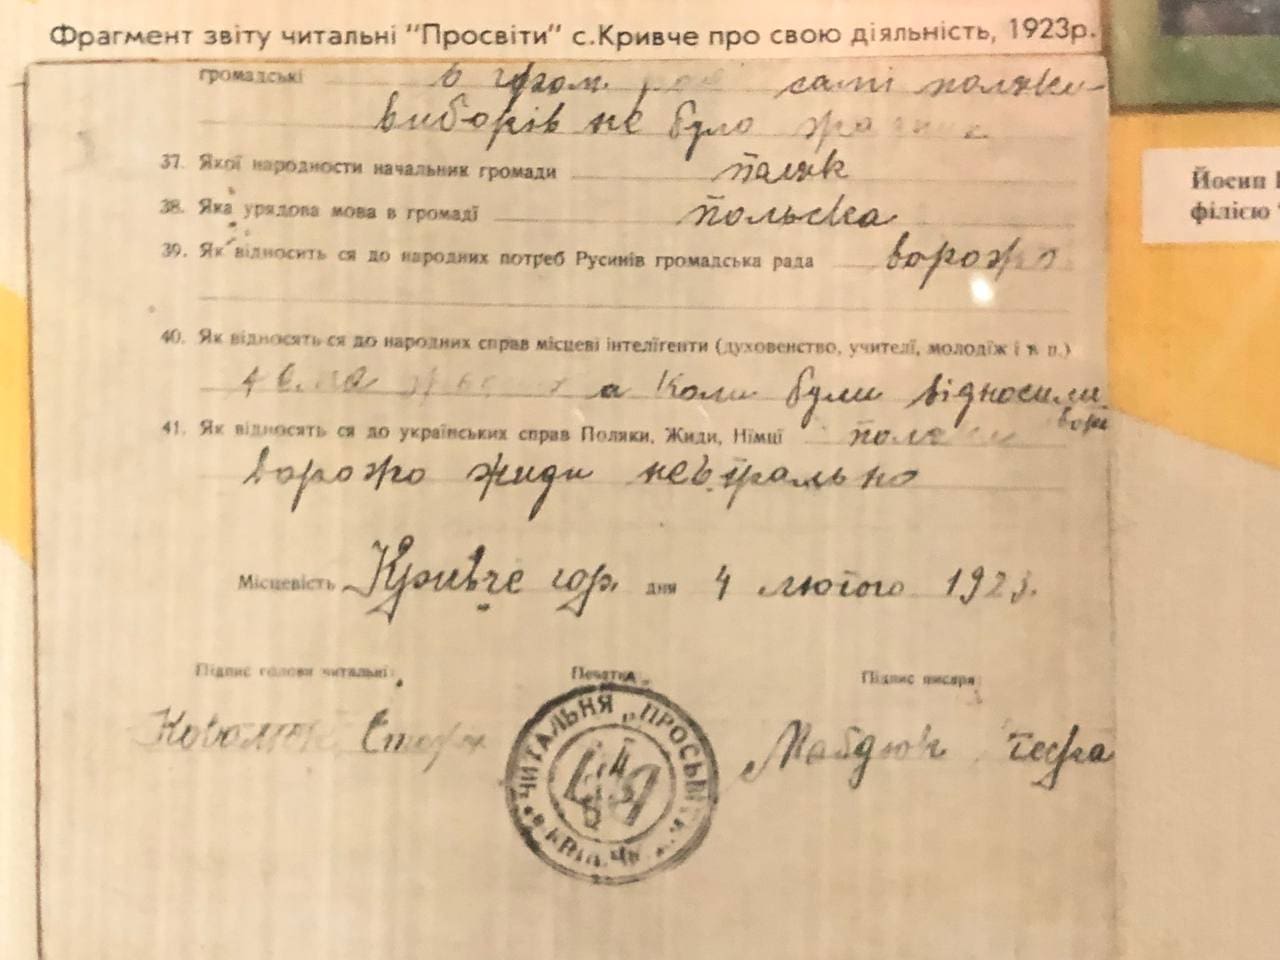 Фрагмент звіту читальні "Просвіти" с.Кривче про свою діяльність, 1923р.
громадські в гром. самі поляки
виборів не було
37. Якої народности начальник громади поляк
38. Яка урядова мова в громаді польска
39. Як відносить ся до народних потреб Русинів громадська рада ворожо
40. Як відносять ся до народних справ місцеві інтелїґенти (духовенство, учителї, молодїж і т. п.)
а коли були відносили
41. Як відносять ся до українських справ Поляки, Жиди, Нїмцї поляки
ворожо жиди невтрально
Місцевість Кривче гор. дня 4 лютого 1923.
Підпис голови читальні: Печатка Підпис писаря:
ЧИТАЛЬНЯ „ПРОСЬВІ
Йосип
філією